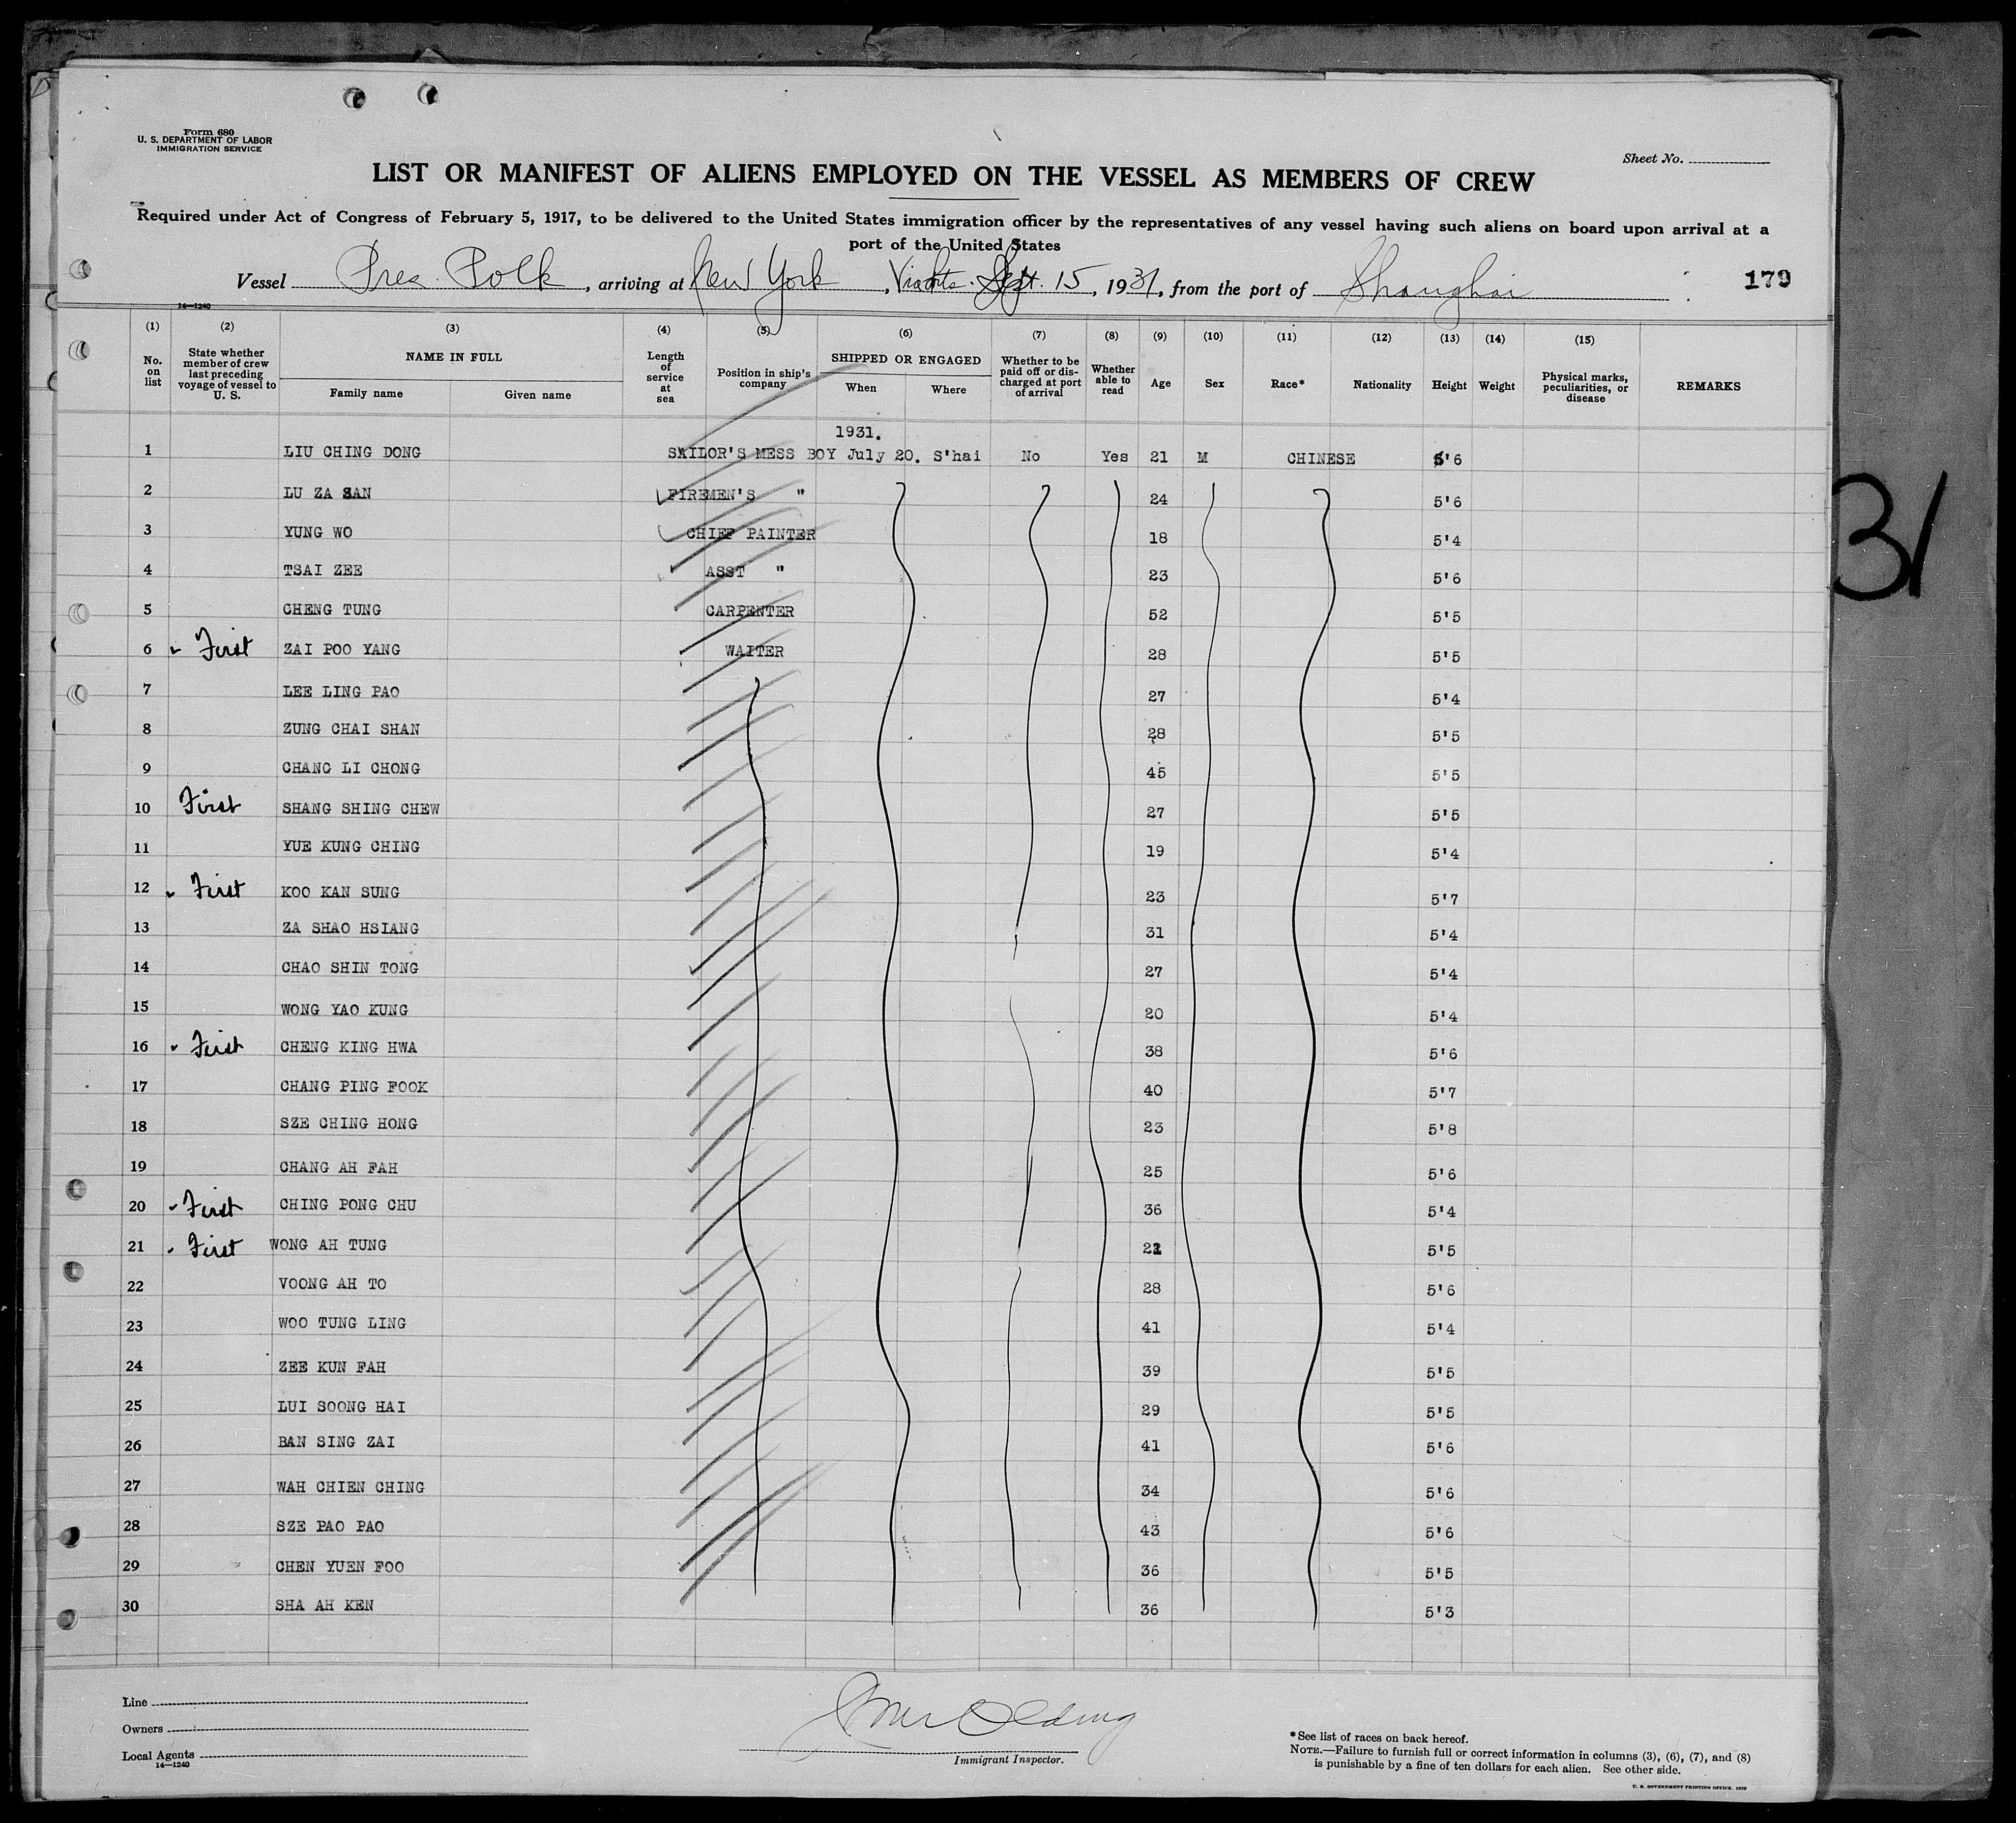 Form 680
U. S. DEPARTMENT OF LABOR
IMMIGRATION SERVICE
Sheet No.
LIST OR MANIFEST OF ALIENS EMPLOYED ON THE VESSEL AS MEMBERS OF CREW
Required under Act of Congress of February 5, 1917, to be delivered to the United States immigration officer by the representatives of any vessel having such aliens on board upon arrival at a
port of the United States
Vessel Pres. Polk, arriving at New York, Sept. 15, 1931, from the port of Shanghai 179
14—1240
(1) (2) (3) (4) (5) (6) (7) (8) (9) (10) (11) (12) (13) (14) (15)
No. on list State whether member of crew last preceding voyage of vessel to U. S. NAME IN FULL Family name Given name Length of service at sea Position in ship's company SHIPPED OR ENGAGED When Where Whether to be paid off or discharged at port of arrival Whether able to read Age Sex Race* Nationality Height Weight Physical marks, peculiarities, or disease REMARKS
1931.
1 LIU CHING DONG SAILOR'S MESS BOY July 20. S'hai No Yes 21 M CHINESE 5'6
2 LU ZA SAN FIREMEN'S " 24 5'6
3 YUNG WO CHIEF PAINTER 18 5'4
4 TSAI ZEE ASST " 23 5'6
5 CHENG TUNG CARPENTER 52 5'5
6 First ZAI POO YANG WAITER 28 5'5
7 LEE LING PAO 27 5'4
8 ZUNG CHAI SHAN 28 5'5
9 CHANG LI CHONG 45 5'5
10 First SHANG SHING CHEW 27 5'5
11 YUE KUNG CHING 19 5'4
12 First KOO KAN SUNG 23 5'7
13 ZA SHAO HSIANG 31 5'4
14 CHAO SHIN TONG 27 5'4
15 WONG YAO KUNG 20 5'4
16 First CHENG KING HWA 38 5'6
17 CHANG PING FOOK 40 5'7
18 SZE CHING HONG 23 5'8
19 CHANG AH FAH 25 5'6
20 First CHING PONG CHU 36 5'4
21 First WONG AH TUNG 5'5
22 VOONG AH TO 28 5'6
23 WOO TUNG LING 41 5'4
24 ZEE KUN FAH 39 5'5
25 LUI SOONG HAI 29 5'5
26 BAN SING ZAI 41 5'6
27 WAH CHIEN CHING 34 5'6
28 SZE PAO PAO 43 5'6
29 CHEN YUEN FOO 36 5'5
30 SHA AH KEN 36 5'3
31
Line
Owners
Local Agents
14—1240
Immigrant Inspector.
*See list of races on back hereof.
NOTE.—Failure to furnish full or correct information in columns (3), (6), (7), and (8)
is punishable by a fine of ten dollars for each alien. See other side.
U. S. GOVERNMENT PRINTING OFFICE: 1929